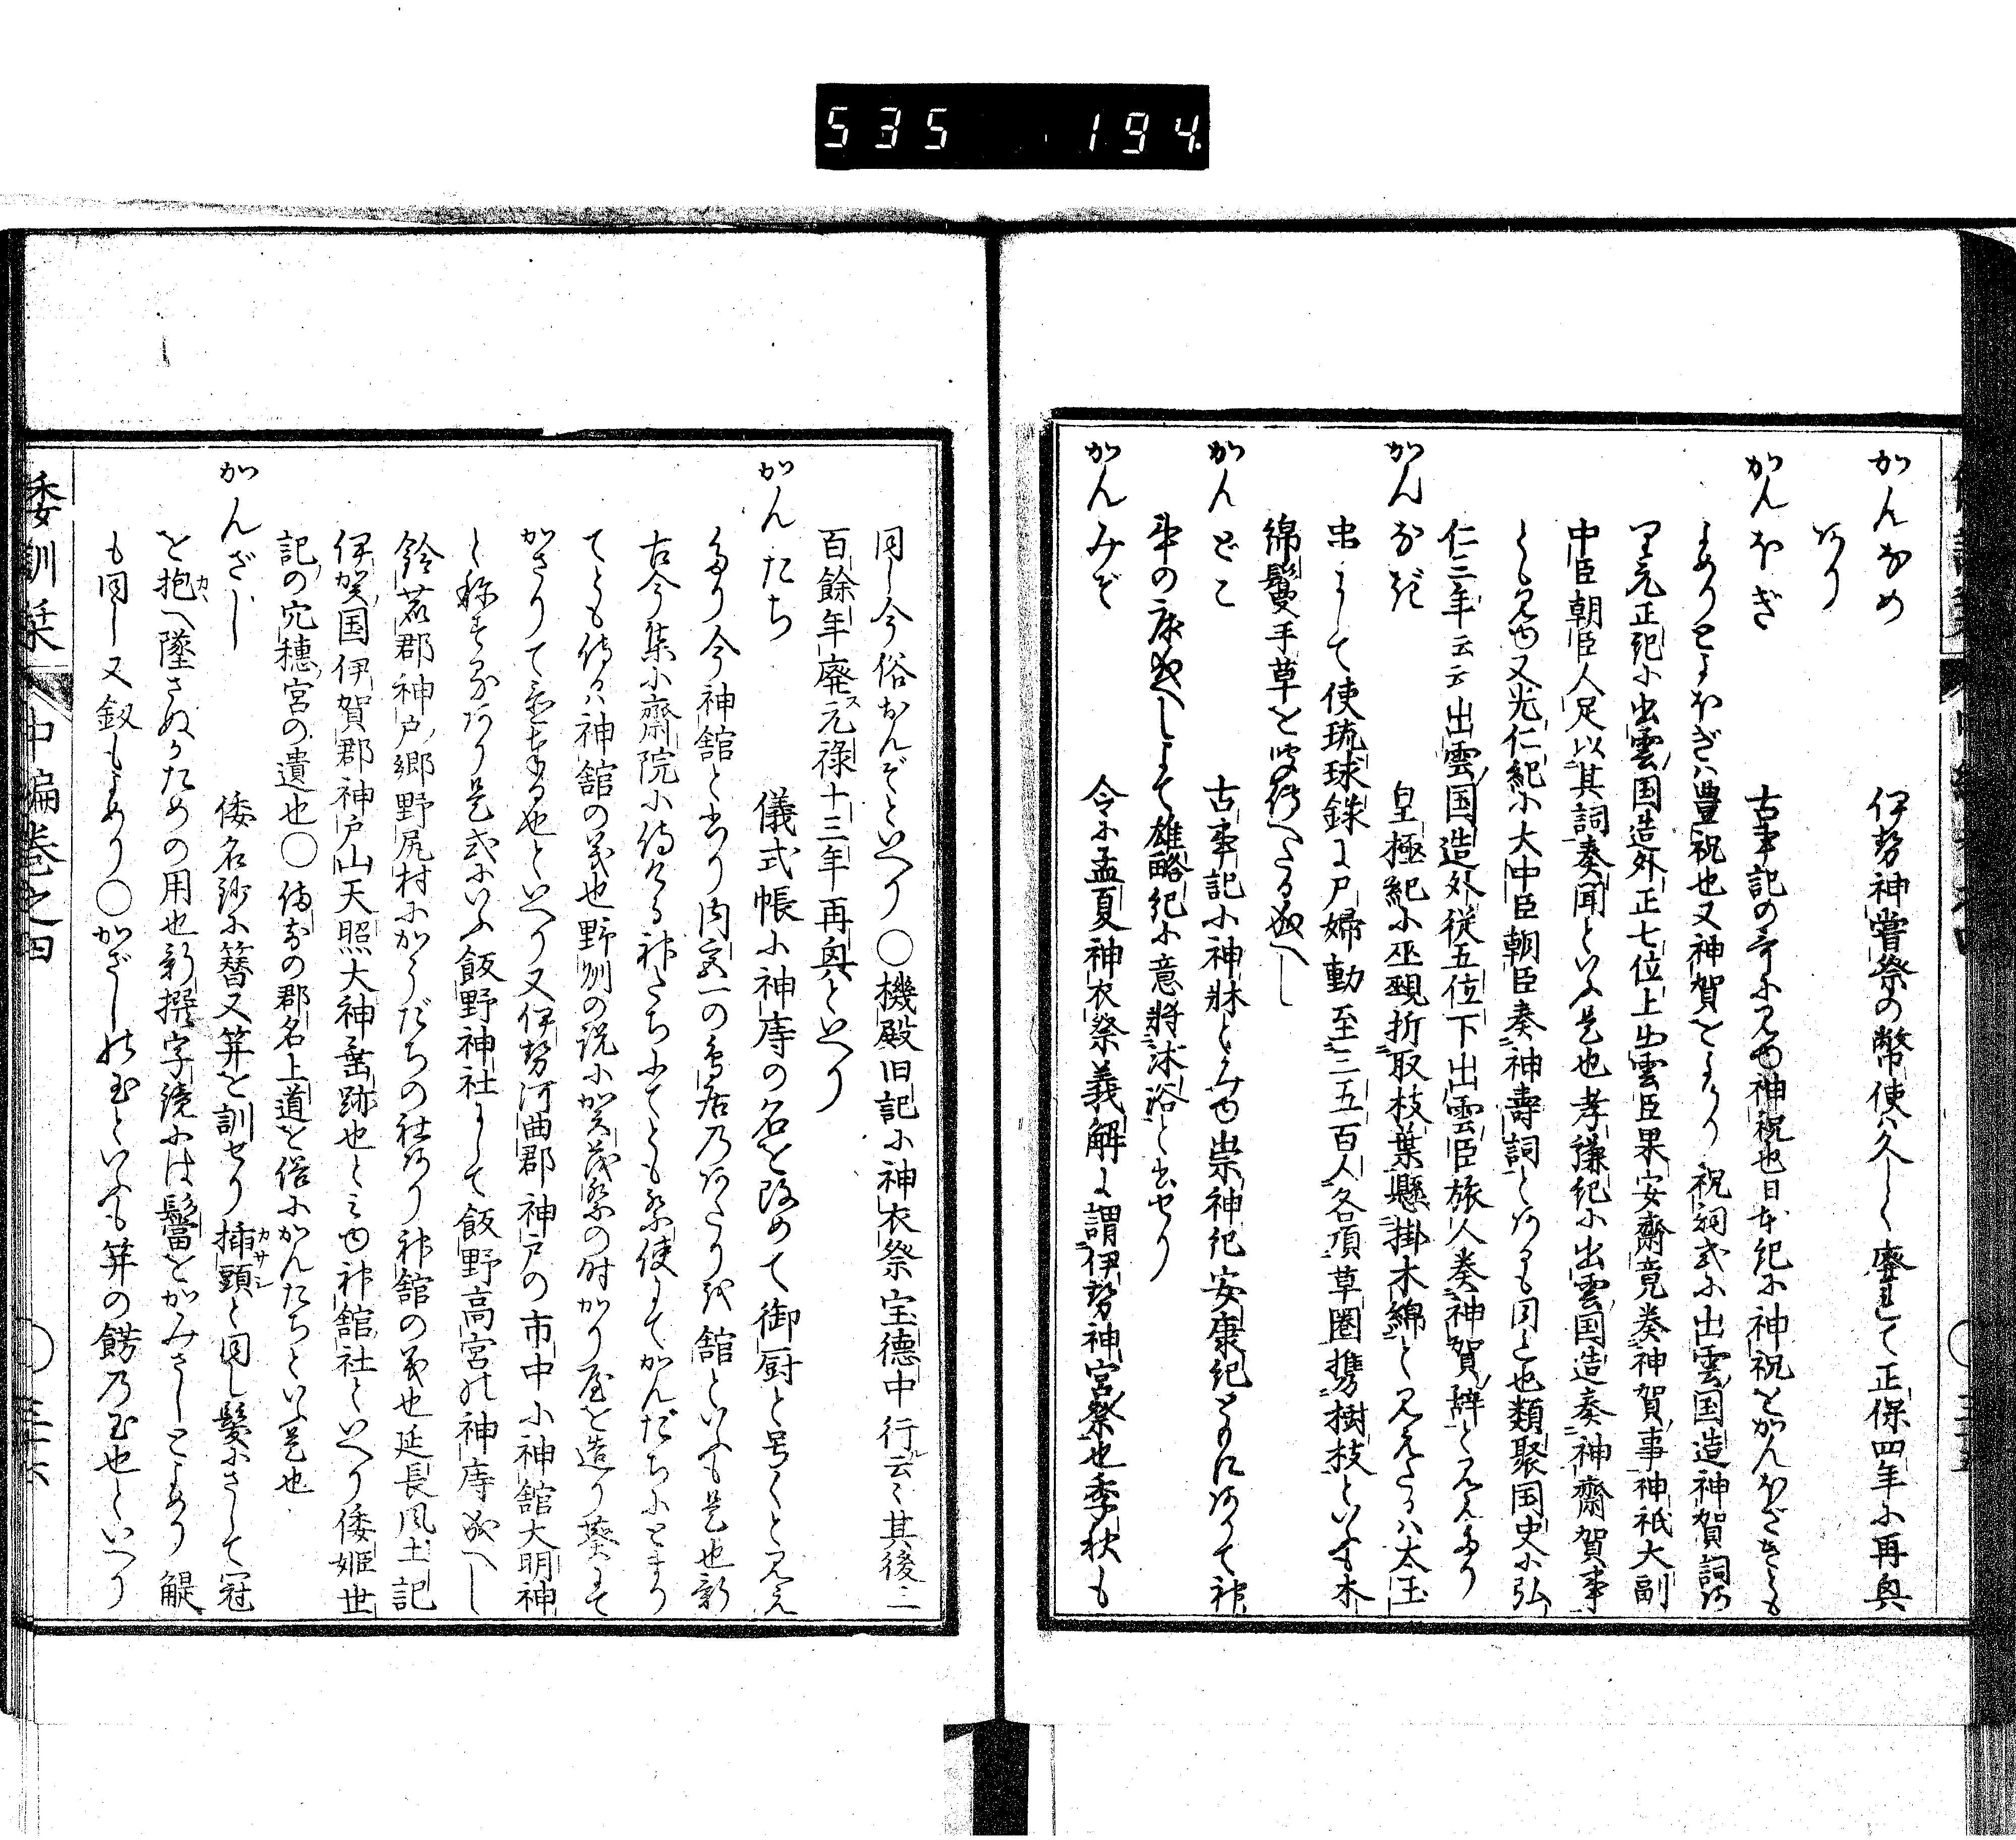 535 194
かんなめ 伊勢神嘗祭の幣使ハ久しく廃せしを正保四年に再興
あり
かんほぎ 古事記の哥に見ゆ神祝也日本紀に神祝をかんほざきとも
よめりとよほぎハ豊祝也又神賀をよめり祝詞式に出雲国造神賀詞あ
り元正紀に出雲国造外正七位上出雲臣果安齋竟奏神賀事神祇大副
中臣朝臣人足以其詞奏聞といふ是也孝謙紀に出雲国造奏神齋賀事
とも見ゆ又光仁紀に大中臣朝臣奏神壽詞とあるも同し也類聚国史に弘
仁三年云云出雲国造外従五位下出雲臣旅人奏神賀辞と見えたり
かんなぎ 皇極紀に巫覡折取枝葉懸掛木綿と見えたるハ太玉
串にして使琉球録に尸婦動至三五百人各頂草圏携樹枝といふも木
綿鬘手草を持へたる成へし
かんどこ 古事記に神牀とみゆ崇神紀安康紀ともにありて神
牀の床成へしよて雄略紀に意將沐浴と出せり
かんみぞ 令に孟夏神衣祭義解に謂伊勢神宮祭也季秋も
同し今俗おんぞといへり〇機殿旧記に神衣祭宝徳中行云々其後二
百餘年廃ス元禄十三年再興といへり
かんたち 儀式帳に神庤の名を改めて御厨と号くと見え
たり今神舘と出り内宮一の鳥居乃あたりを舘といふも是也新
古今集に齋院に侍ける時神たちにてとも祭使にてかんだちにとまり
てとも侍るハ神舘の義也野州の説に賀茂祭の時かり屋を造り葵にて
かさりて忌こもる也といへり又伊勢河曲郡神戸の市中に神舘大明神
と称する有り是式にいふ飯野神社にして飯野高宮の神庤成へし
鈴鹿郡神戸郷野尻村にかうだちの社あり神舘の義也延長風土記
伊賀国伊賀郡神戸山天照大神垂跡也とみゆ神舘社といへり倭姫世
記の穴穂宮の遺也〇備前の郡名上道を俗にかんたちといふ是也
かんざし 倭名鈔に簪又笄を訓せり挿頭カサシと同し髪にさして冠
を抱カヽへ墜さぬための用也新撰字鏡には鬠をかみさしとよめり觽
も同し又釵もよめり〇かざしの玉といふも笄の餝乃玉也といへり
倭訓栞 中編巻之四 三十六